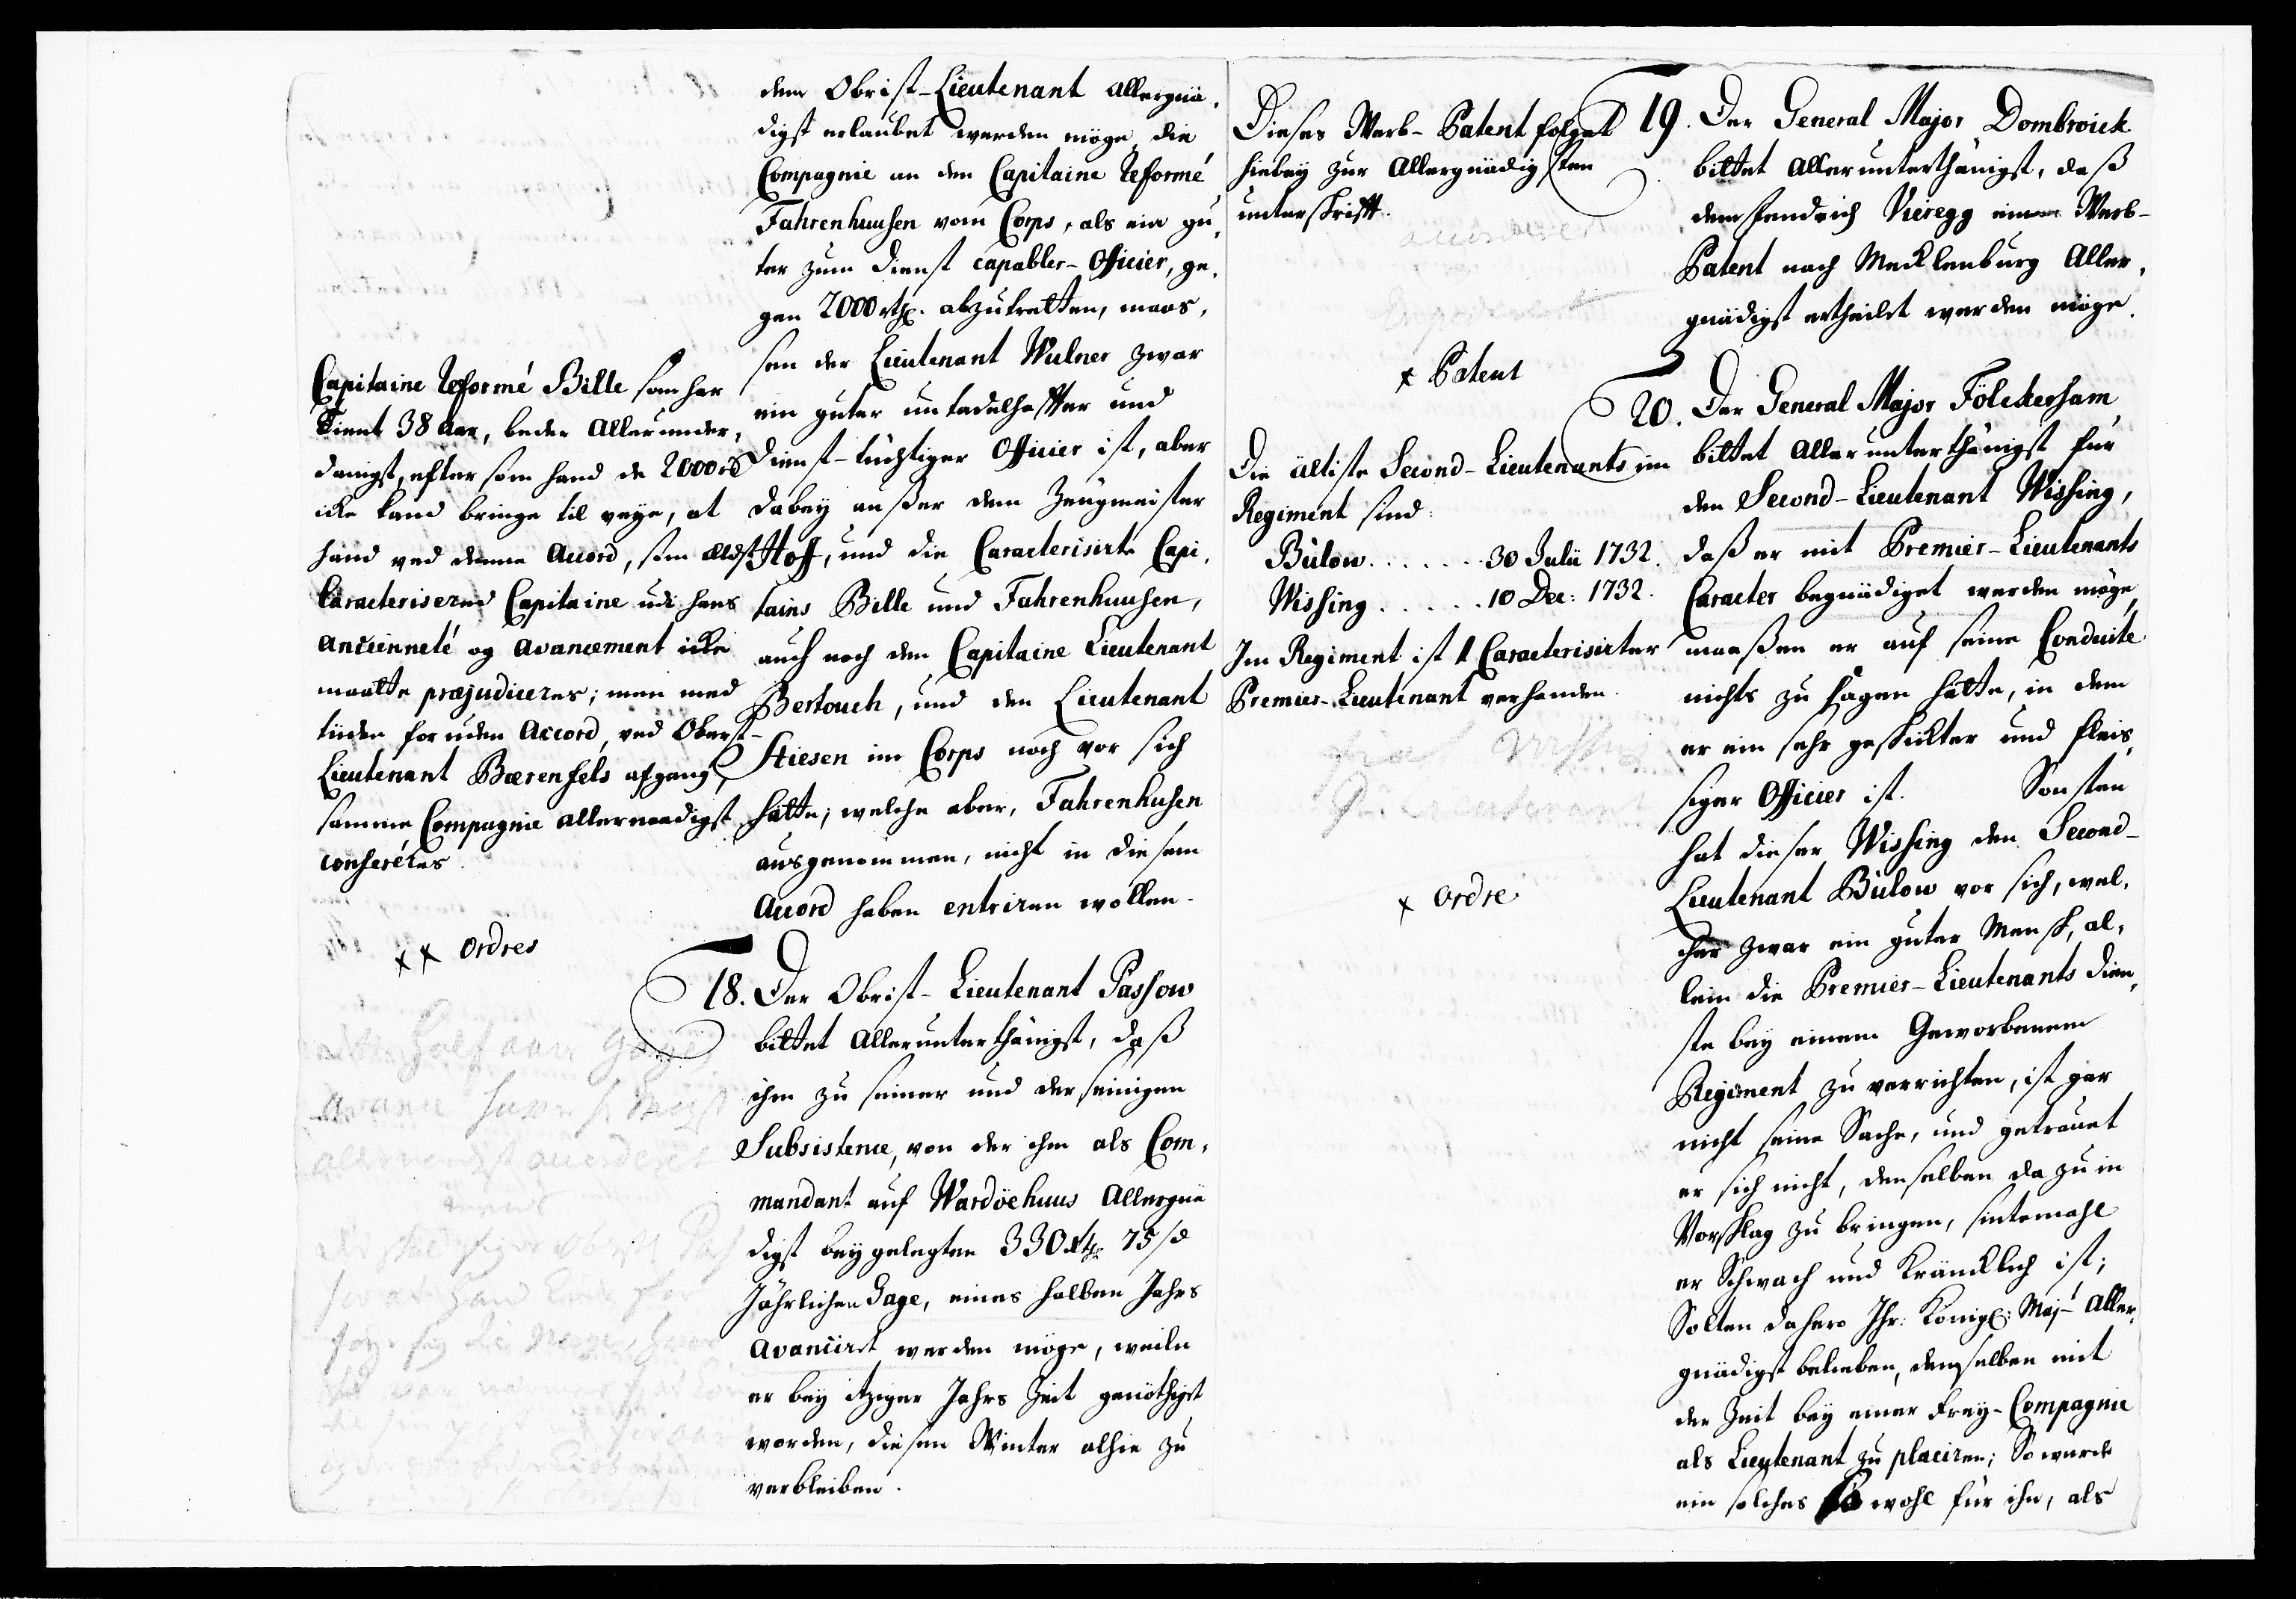 dem Obrist-Lieutenant Allergnä,
digst erlaubet werden möge, die
Compagnie an den Capitaine Reformé
Fahrenhuusen vom Corps, als ein gu,
ter zum Dienst capabler-Officier, ge,
gen 2000 rthl. abzutretten, maas,
sen der Lieutenant Wulner zwar
ein guter untadelhaffter und
Dienst-tüchtiger Officier ist, aber
dabey außer dem Zeugmeister
Hoff, und die Caracterisirte Capi,
tains Bille und Fahrenhuusen,
auch noch den Capitaine Lieutenant
Bertouch, und den Lieutenant
Stiesen im Corps noch vor sich
hätte; welche aber, Fahrenhusen
ausgenommen, nicht in diesem
Accord haben entriren wollen.
Capitaine Reformé Bille som har
Tient 38 Aar, beder Allerunder,
danigst, eftersom hand de 2000 rd
icke kand bringe til veye, at
hand ved denne Accord, som eldst
Caracterisered Capitaine udi hans
Ancienneté og Avancement icke
maatte præjudiceres; men med
tiiden for uden Accord, ved Oberst-
Lieutenant Bærenfels afgang,
samme Compagnie allernaadigst
confereres.
x x Ordres
18. Der Obrist-Lieutenant Passow
bittet Allerunterthänigst, daß
ihm zu seiner und der seinigen
Subsistence, von der ihm als Com,
mandant auf Wardöehuus Allergnä
digst beygelegten 330 rthl. 75 ß
Jährlichen Gage, eines halben Jahrs
Avancirt werden möge, weiln
er bey itziger Jahrs Zeit genöthigt
worden, diesen Winter alhie zu
verbleiben.
Dieses Werb-Patent folget
hiebey zur Allergnädigsten
unterschrifft.
x Patent
19. Der General Major Dombroick
bittet Allerunterthänigst, daß
dem Fendrich Vieregg einen Werb-
Patent nach Mecklenburg Aller,
gnädigst ertheilet werden möge.
Die ältiste Second-Lieutenants im
Regiment sind:
Bülow . . . . . . 30 Julii 1732.
Wissing . . . . . 10 Dec: 1732.
Im Regiment ist 1 Caracterisirter
Premier-Lieutenant verhanden.
x Ordre
20. Der General Major Fölckersham
bittet Allerunterthänigst für
den Second-Lieutenant Wissing,
daß er mit Premier-Lieutenants
Caracter begnädiget werden möge,
maaßen er auf seine Conduite
nichts zu sagen hätte, in dem
er ein sehr geschickter und fleis,
siger Officier ist. Sonsten
hat dieser Wissing den Second-
Lieutenant Bülow vor sich, wel,
cher zwar ein guter Mensch, al,
lein die Premier-Lieutenants Dien,
ste bey einem Geworbenem
Regiment zu verrichten, ist gar
nicht seine Sache, und getrauet
er sich nicht, denselben dazu in
Vorschlag zu bringen, sintemahl
er Schwach und Kräncklich ist;
Solten dahero Ihr: Königl: Maj- Aller,
gnädigst belieben, demselben mit
der Zeit bey einer Frey-Compagnie
als Lieutenant zu placiren; So würde
ein solches so wohl für ihn, als